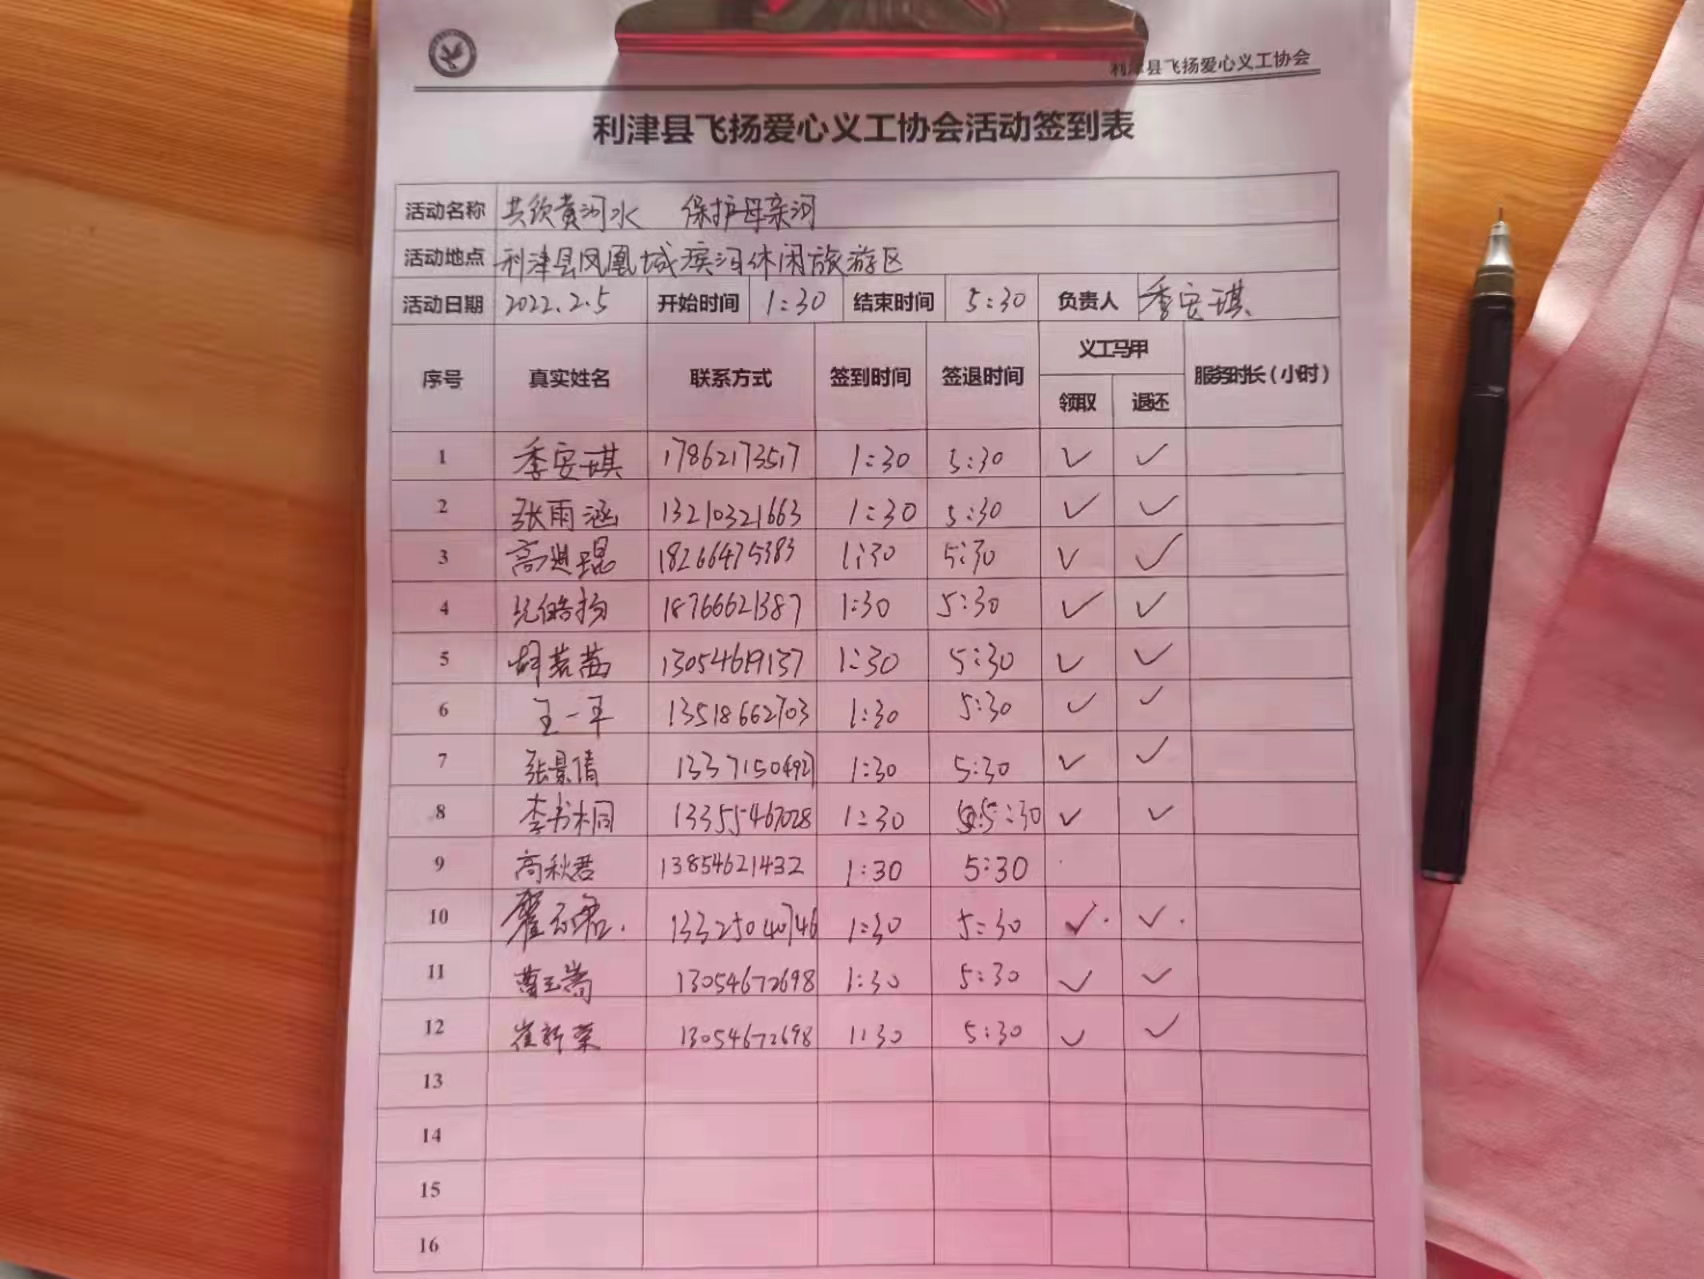 利津县飞扬爱心义工协会
利津县飞扬爱心义工协会活动签到表
活动名称 共饮黄河水 保护母亲河
活动地点 利津县凤凰城滨河休闲旅游区
活动日期 2022.2.5 开始时间 1:30 结束时间 5:30 负责人 季安琪
序号 真实姓名 联系方式 签到时间 签退时间 义工马甲 服务时长(小时)
领取 退还
1 季安琪 17862173517 1:30 5:30 ✓ ✓
2 张雨涵 13210321663 1:30 5:30 ✓ ✓
3 18266475383 1:30 5:30 ✓ ✓
4 18766621387 1:30 5:30 ✓ ✓
5 胡茗茜 13054619137 1:30 5:30 ✓ ✓
6 王一平 13518662703 1:30 5:30 ✓ ✓
7 张景倩 13371504921 1:30 5:30 ✓ ✓
8 李书桐 13355467028 1:30 5:30 ✓ ✓
9 高秋君 13854621432 1:30 5:30
10 13325040746 1:30 5:30 ✓ ✓
11 曹玉嵩 13054672698 1:30 5:30 ✓ ✓
12 崔新荣 13054672698 1:30 5:30 ✓ ✓
13
14
15
16